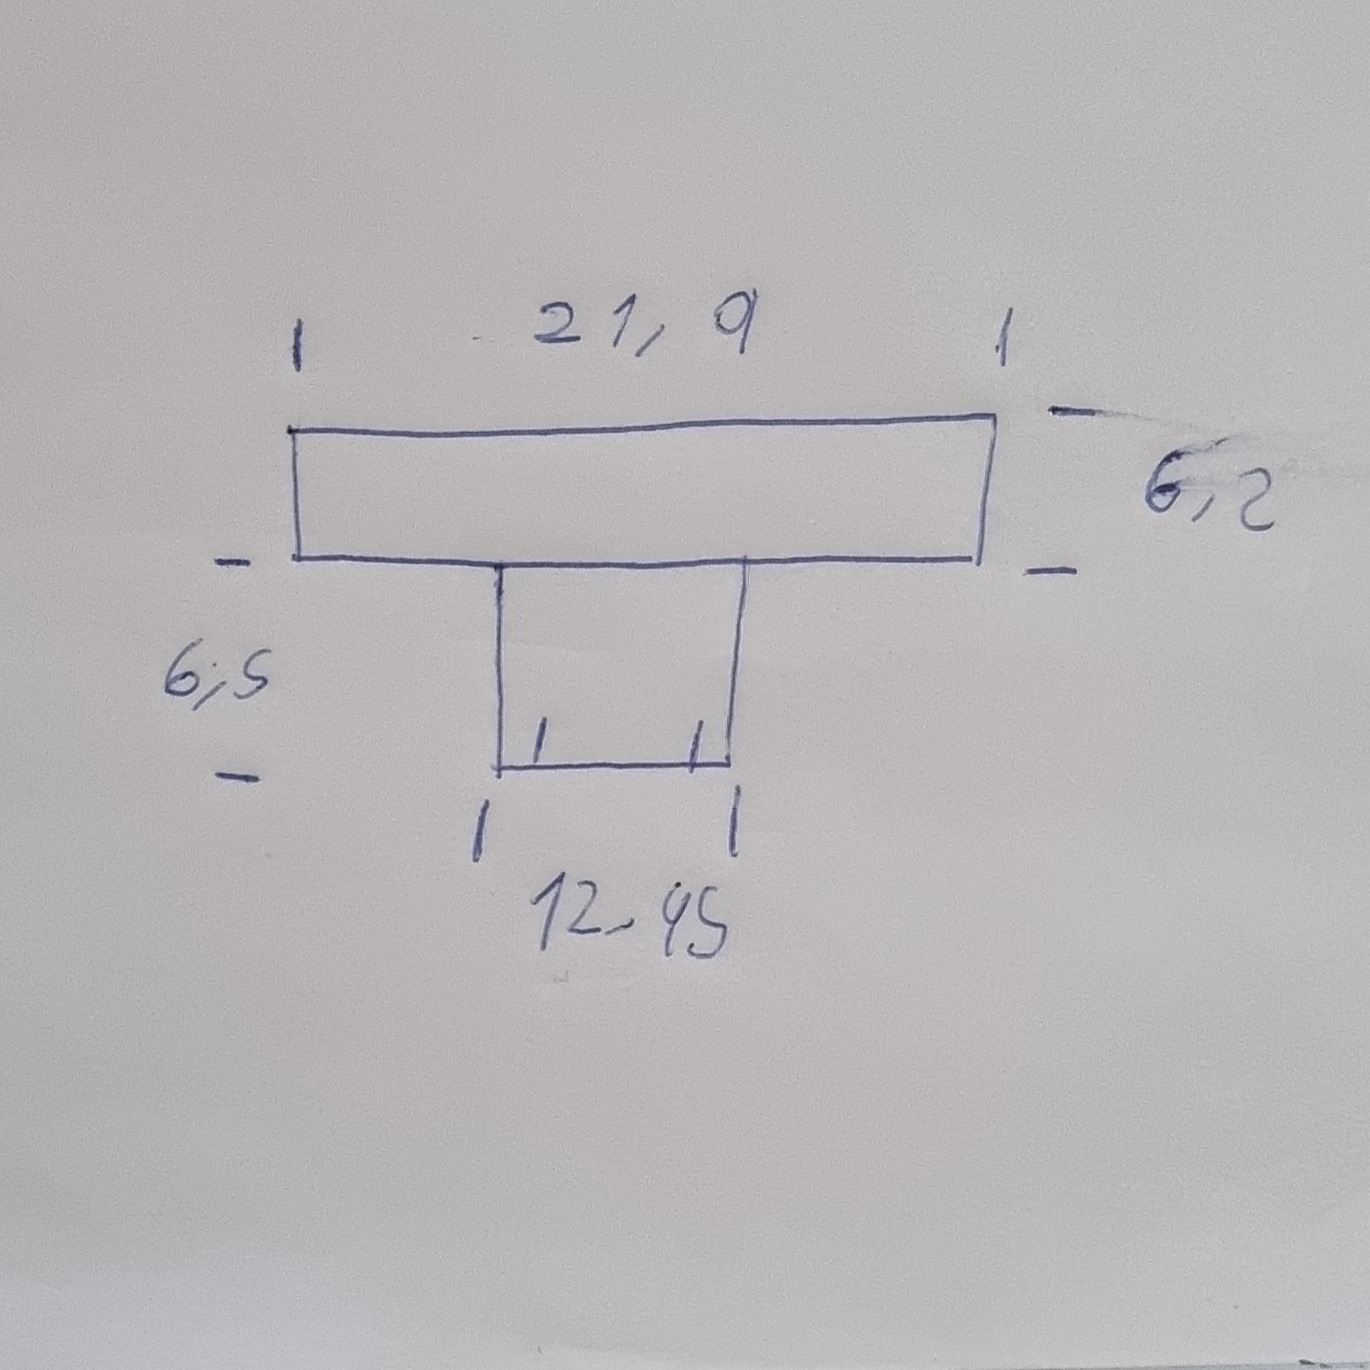 21,9
6,2
6,5
12,45